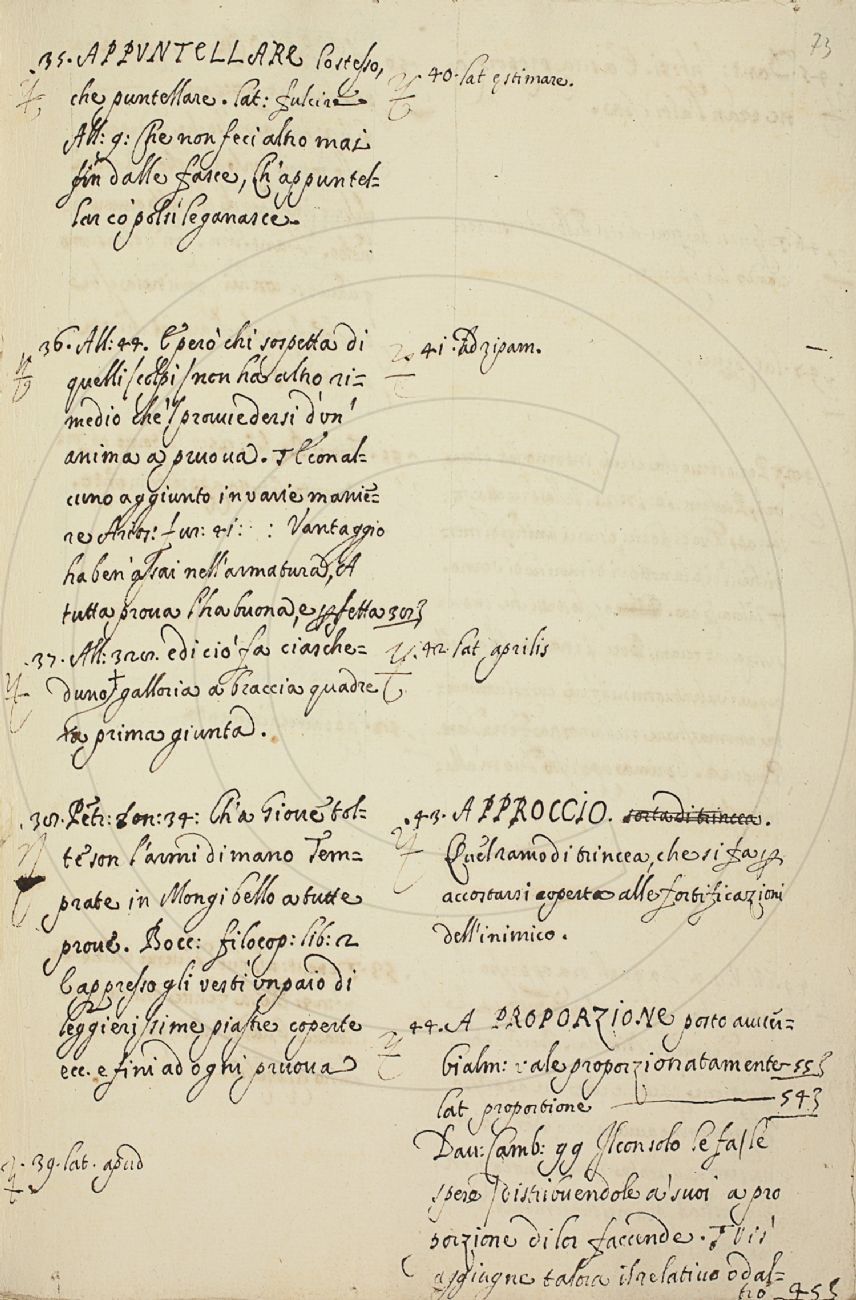 73
35. APPUNTELLARE lo stesso,
che puntellare. lat: fulcire
All: 9: Che non feci altro mai
fin dalle fasce, Ch'appuntel=
lar co' polsi le ganasce.
36. All: 44. E però chi sospetta di
quelli (colpi) non ha altro ri=
medio che' provvedersi d'un'
anima a pruova. E con al=
cuno aggiunto in varie manie=
re Arios: fur: 41: : Vantaggio
ha ben assai nell'armatura, A
tutta prova l'ha buona, e pfetta 303
37. All: 328. ed ciò fa ciasche=
duno galloria a braccia quadre
a prima giunta.
38. Petr: son: 34: Ch'a Giove tol=
te son l'armi di mano Tem=
prate in Mongibello a tutte
prove. Bocc: filocop: lib: 2
E appresso gli vestì un paio di
leggierissime piastre coperte
ecc. e fini ad ogni pruova
39. lat. apud
40. lat estimare.
41. Ad ripam.
42. lat aprilis
43. APPROCCIO. sorta di trincea.
Quel ramo di trincea, che si fa p
accostarsi coperto alle fortificazioni
dell'inimico.
44. A PROPORZIONE posto avver=
bialm: vale proporzionatamente 553
lat proportione 543
Dav: Camb: 99 Il consolo le fa (le
spere) distribuendole a' suoi a pro
porzione di lor faccende. T Vi si
aggiugne talora il relativo o d'al=
tro 453